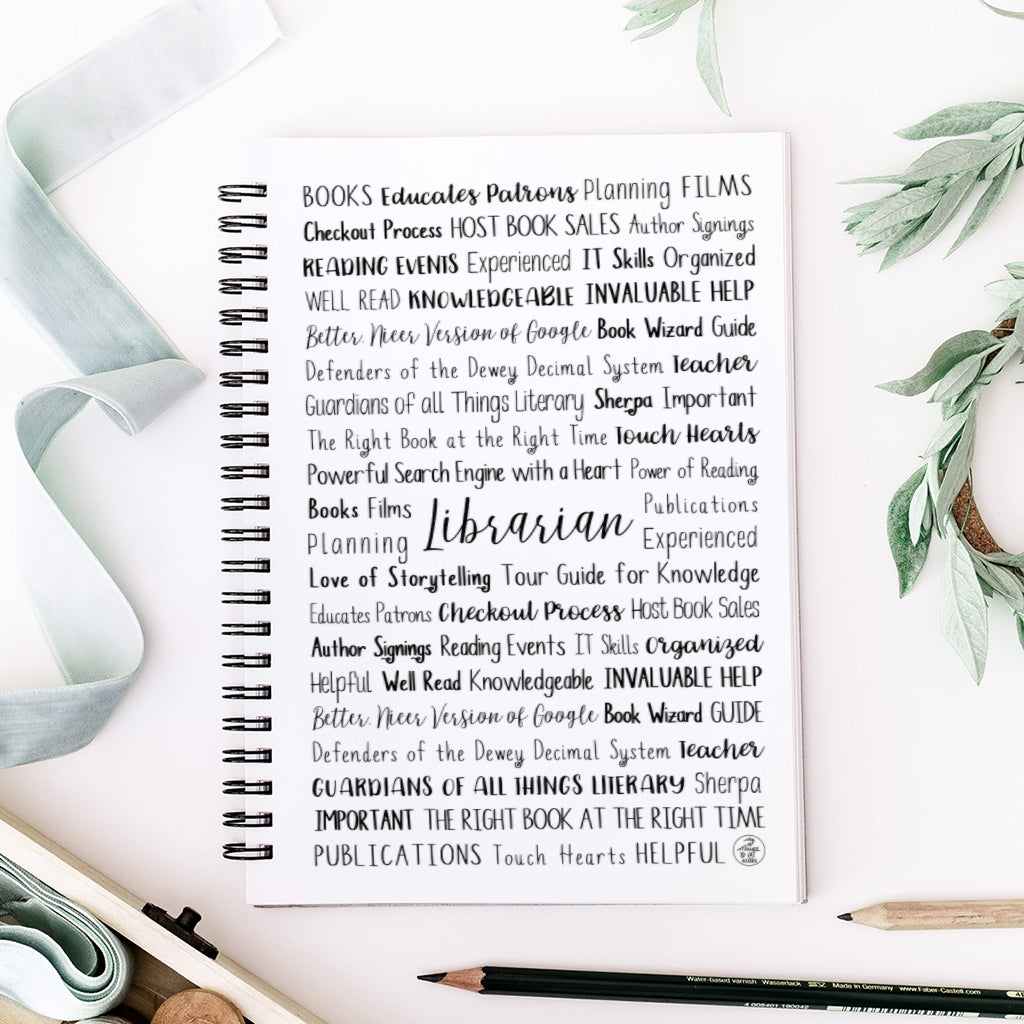 BOOKS Educates Patrons Planning FILMS
Checkout Process HOST BOOK SALES Author Signings
READING EVENTS Experienced IT Skills Organized
WELL READ KNOWLEDGEABLE INVALUABLE HELP
Better, Nicer Version of Google Book Wizard Guide
Defenders of the Dewey Decimal System Teacher
Guardians of all Things Literary Sherpa Important
The Right Book at the Right Time Touch Hearts
Powerful Search Engine with a Heart Power of Reading
Books Films Librarian Publications
Planning Experienced
Love of Storytelling Tour Guide for Knowledge
Educates Patrons Checkout Process Host Book Sales
Author Signings Reading Events IT Skills Organized
Helpful Well Read Knowledgeable INVALUABLE HELP
Better, Nicer Version of Google Book Wizard GUIDE
Defenders of the Dewey Decimal System Teacher
GUARDIANS OF ALL THINGS LITERARY Sherpa
IMPORTANT THE RIGHT BOOK AT THE RIGHT TIME
PUBLICATIONS Touch Hearts HELPFUL
Water-based varnish Wasserlack Made in Germany www.Faber-Castell.com
4 005401 190042